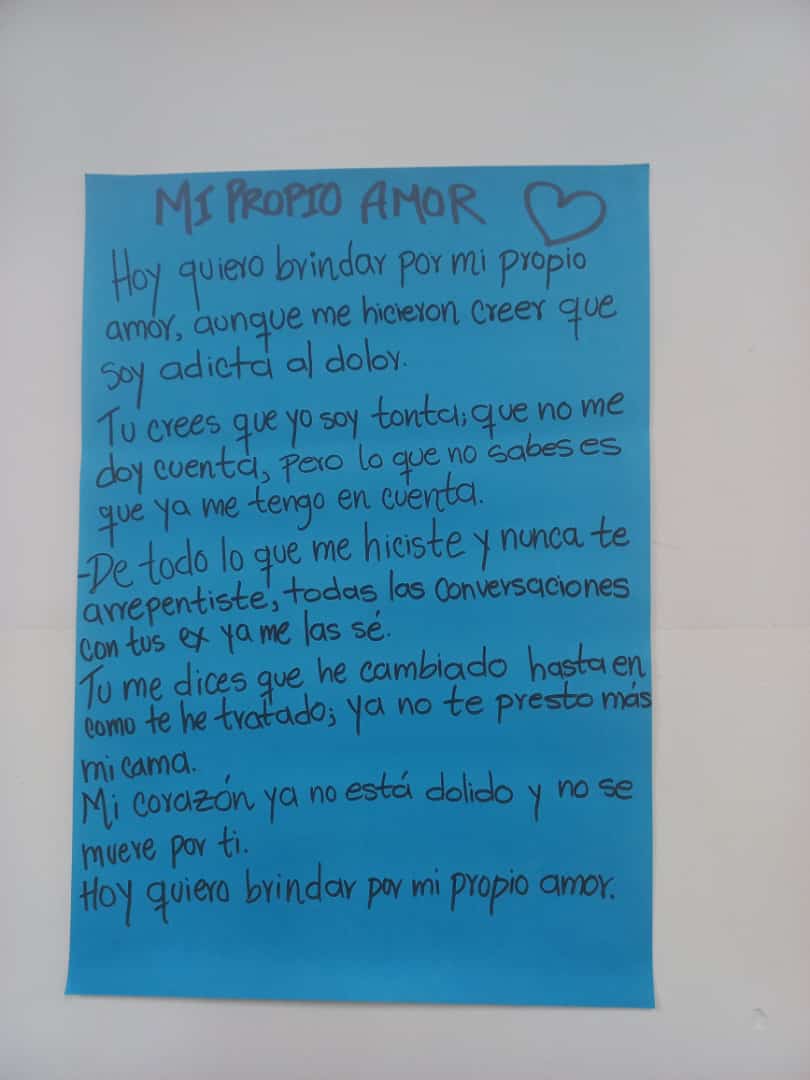 MI PROPIO AMOR
Hoy quiero brindar por mi propio
amor, aunque me hicieron creer que
soy adicta al dolor.
Tu crees que yo soy tonta; que no me
doy cuenta, pero lo que no sabes es
que ya me tengo en cuenta.
-De todo lo que me hiciste y nunca te
arrepentiste, todas las conversaciones
con tus ex ya me las sé.
Tu me dices que he cambiado hasta en
como te he tratado; ya no te presto más
mi cama.
Mi corazón ya no está dolido y no se
muere por ti.
Hoy quiero brindar por mi propio amor.